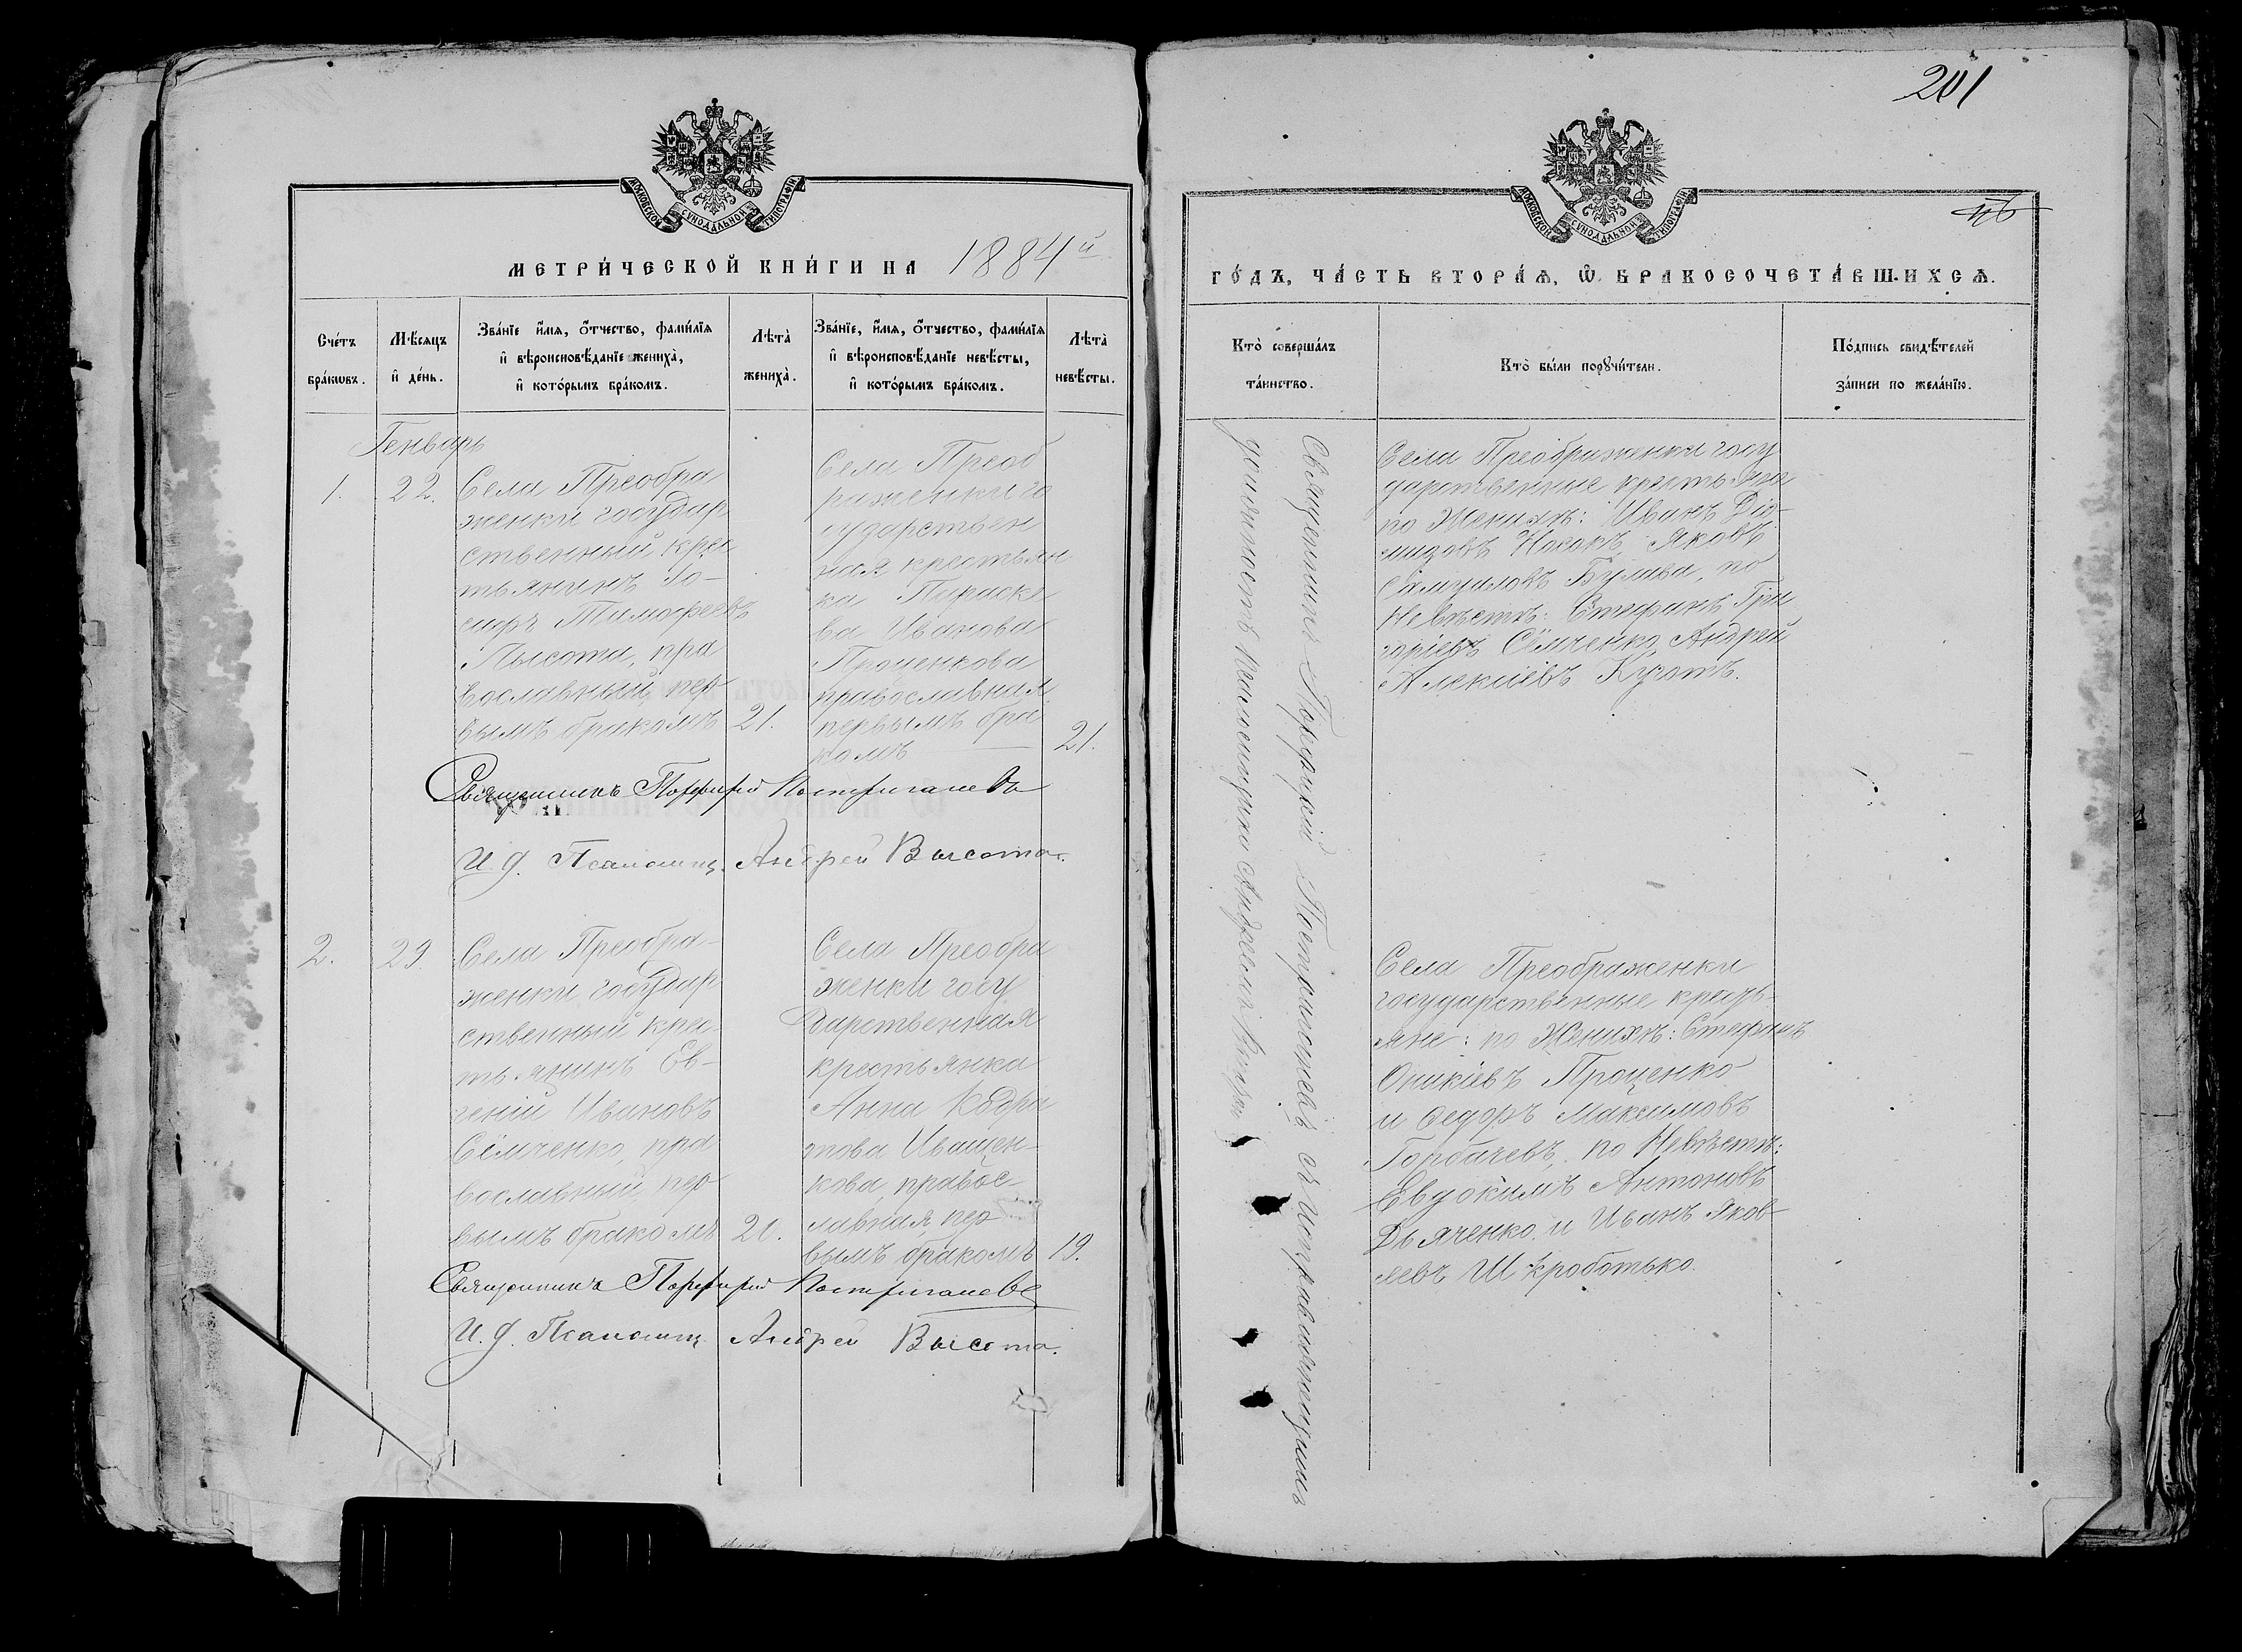 201
МОСКОВСКОЙ СѴНОДАЛЬНОЙ ТИПОГРАФІИ
МЕТРИ́ЧЕСКОЙ КНИ́ГИ НА 1884й
Сче́тъ бра́кωвъ.
Мѣ́сяцъ и҆ де́нь.
Зва́нїе и҆́мѧ, ѻ҆́тчество, фами́лїѧ
и҆ вѣроисповѣ́данїе женихà,
и҆ кото́рымъ бра́комъ.
Лѣтà женихà.
Зва́нїе, и҆́мѧ, ѻ҆́тчество, фами́лїѧ
и҆ вѣроисповѣ́данїе невѣ́сты,
и҆ кото́рымъ бра́комъ.
Лѣтà невѣ́сты.
Генварь
1.
22.
Села Преобра
женки государ
ственный крес
тьянинъ
Тимофеевъ
Лысота, пра
вославный, пер
вымъ бракомъ
21.
Села Преоб
раженки го
сударствен
ная крестьян
ка Параске
ва Иванова
Проценкова
православная
первымъ бра
комъ
21.
Священникъ Порфирій Постригачевъ
И. д. Псаломщ. Андрей Высота.
2.
29.
Села Преобра-
женки государ
ственный крес-
тьянинъ Ев-
геній Ивановъ
Сёмченко, пра
вославный, пер
вымъ бракомъ
20.
Села Преобра
женки госу
дарственная
крестьянка
Анна Кодра
това Иващен-
кова, правос-
лавная, пер
вымъ бракомъ
19.
Священникъ Порфирій Постригачевъ
И. д. Псаломщ. Андрей Высота.
МОСКОВСКОЙ СѴНОДАЛЬНОЙ ТИПОГРАФІИ
ГО́ДЪ, ЧА́СТЬ ВТОРА́Ѧ, Ѽ БРАКОСОЧЕТА́ВШИХСѦ.
Кто̀ соверша́лъ
та́инство.
Кто̀ бы́ли порꙋчи́тели.
По́дпись свидѣ́телей
за́писи по жела́нїю.
Священникъ Порфирій Постригачевъ съ исправляющимъ
должность псаломщика Андреемъ Высотою
Села Преображенки госу
дарственные крестьяне
по Женихѣ: Иванъ Діо-
мидовъ Носакъ, Яковъ
Самуиловъ Булава, по
Невѣстѣ: Стефанъ Гри
горіевъ Сёмченко, Андрей
Алексіевъ
Села Преображенки
государственные кресть-
яне: по Женихѣ: Стефанъ
Оникіевъ Проценко
и Федоръ Максимовъ
Горбачевъ, по Невѣстѣ:
Евдокимъ Антоновъ
Дьяченко и Иванъ Яков-
левъ Шкроботько.